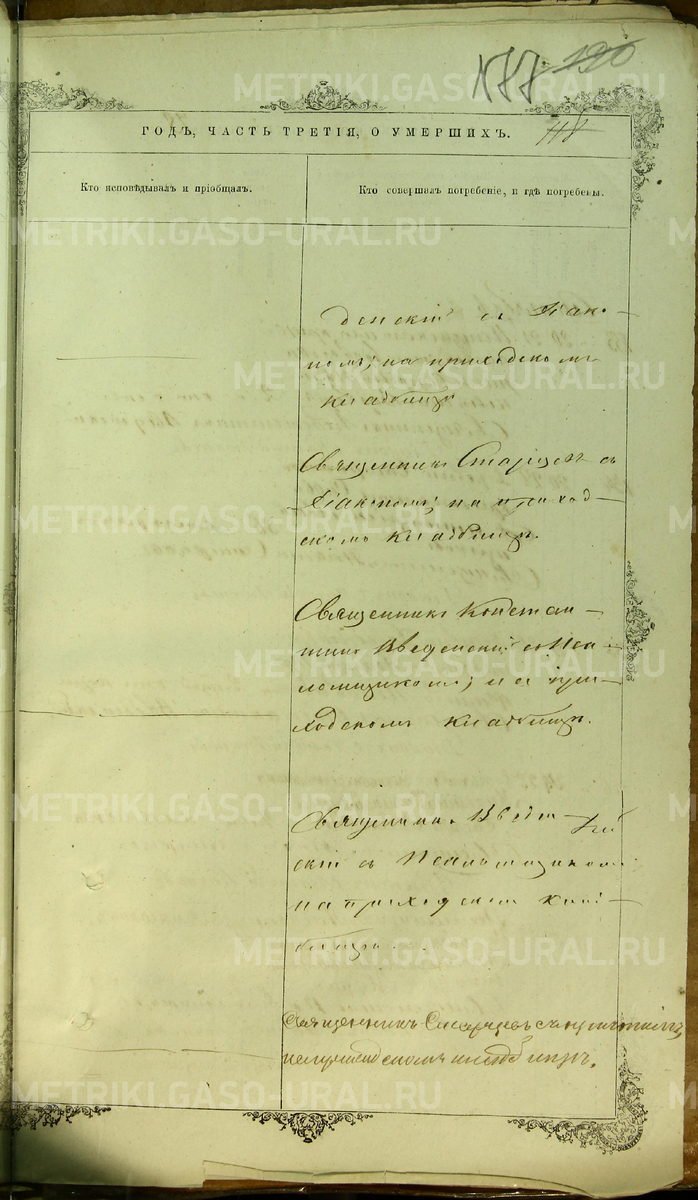 177 190
ГОДЪ, ЧАСТЬ ТРЕТІЯ, О УМЕРШИХЪ. 118
Кто исповѣдывалъ и пріобщалъ.
Кто совершалъ погребеніе, и гдѣ погребены.
денскій съ Діако-
номъ; на приходскомъ
кладбищѣ
Священникъ Старцевъ съ
Діакономъ; на приход-
скомъ кладбищѣ.
Священникъ Констан-
тинъ Введенскій съ Пса-
ломщикомъ; на при-
ходскомъ кладбищѣ.
Священникъ Введен-
скій съ Псаломщикомъ
на приходскомъ клад-
бищѣ.
Священникъ съ
на приходскомъ кладбищѣ.
METRIKI.GASO-URAL.RU